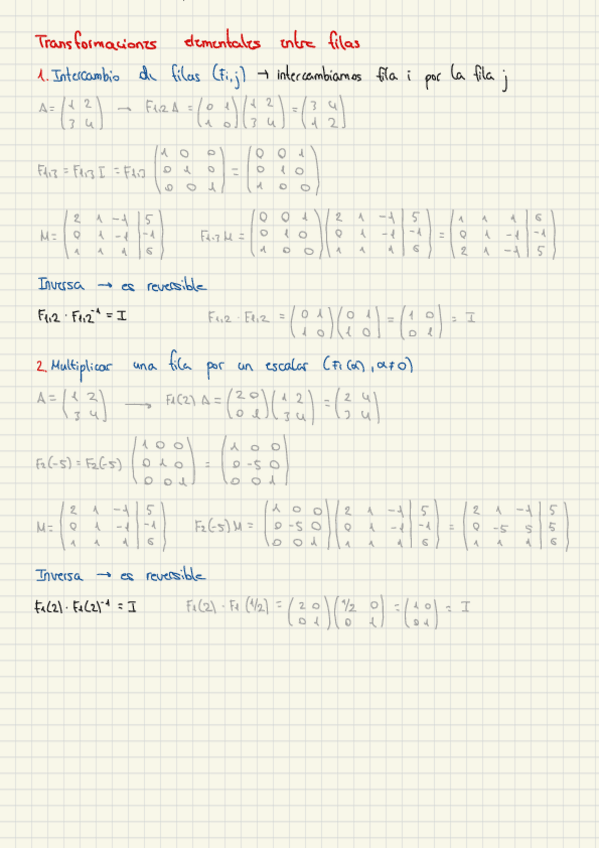 Transformaciones elementales entre filas
1. Intercambio de filas (Fi,j) → intercambiamos fila i por la fila j
A = (1 2; 3 4) → F1,2 A = (0 1; 1 0)(1 2; 3 4) = (3 4; 1 2)
F1,3 = F1,3 I = F1,3 (1 0 0; 0 1 0; 0 0 1) = (0 0 1; 0 1 0; 1 0 0)
M = (2 1 -1 | 5; 0 1 -1 | -1; 1 1 1 | 6) F1,3 M = (0 0 1; 0 1 0; 1 0 0)(2 1 -1 | 5; 0 1 -1 | -1; 1 1 1 | 6) = (1 1 1 | 6; 0 1 -1 | -1; 2 1 -1 | 5)
Inversa → es reversible
F1,2 · F1,2⁻¹ = I F1,2 · F1,2 = (0 1; 1 0)(0 1; 1 0) = (1 0; 0 1) = I
2. Multiplicar una fila por un escalar (Fi(α), α≠0)
A = (1 2; 3 4) → F1(2) A = (2 0; 0 1)(1 2; 3 4) = (2 4; 3 4)
F2(-5) = F2(-5) (1 0 0; 0 1 0; 0 0 1) = (1 0 0; 0 -5 0; 0 0 1)
M = (2 1 -1 | 5; 0 1 -1 | -1; 1 1 1 | 6) F2(-5) M = (1 0 0; 0 -5 0; 0 0 1)(2 1 -1 | 5; 0 1 -1 | -1; 1 1 1 | 6) = (2 1 -1 | 5; 0 -5 5 | 5; 1 1 1 | 6)
Inversa → es reversible
F1(2) · F1(2)⁻¹ = I F1(2) · F1(1/2) = (2 0; 0 1)(1/2 0; 0 1) = (1 0; 0 1) = I